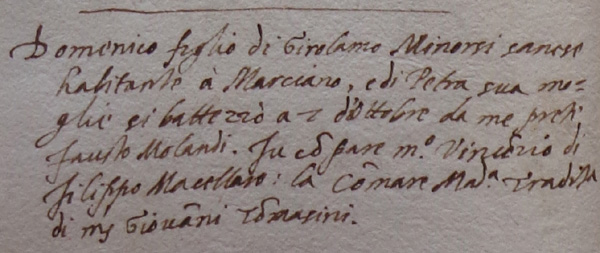 Domenico figlio di Girolamo Minorsi sanese
habitante à Marciano, e di Petra sua mo=
glie si battezzò a dì d'ottobre da me prete
fausto Molandi. fu cõpare m.º Vincẽtio di
filippo Macellaro: la Cõmare Mad.ª
di ms Giovãni Tõmasini.